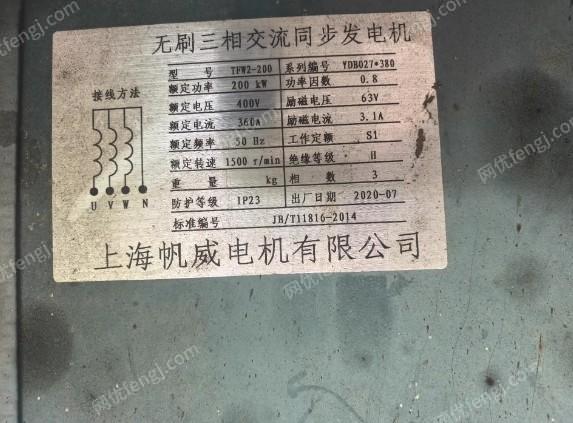 无刷三相交流同步发电机
接线方法
U V W N
型 号 TFW2-200 系列编号 YDB027*380
额定功率 200 kW 功率因数 0.8
额定电压 400V 励磁电压 63V
额定电流 360A 励磁电流 3.1A
额定频率 50 Hz 工作定额 S1
额定转速 1500 r/min 绝缘等级 H
重 量 kg 相 数 3
防护等级 IP23 出厂日期 2020-07
标准编号 JB/T11816-2014
上海帆威电机有限公司
网优fengj.com
网优fengj.com
网优fengj.com
网优fengj.com